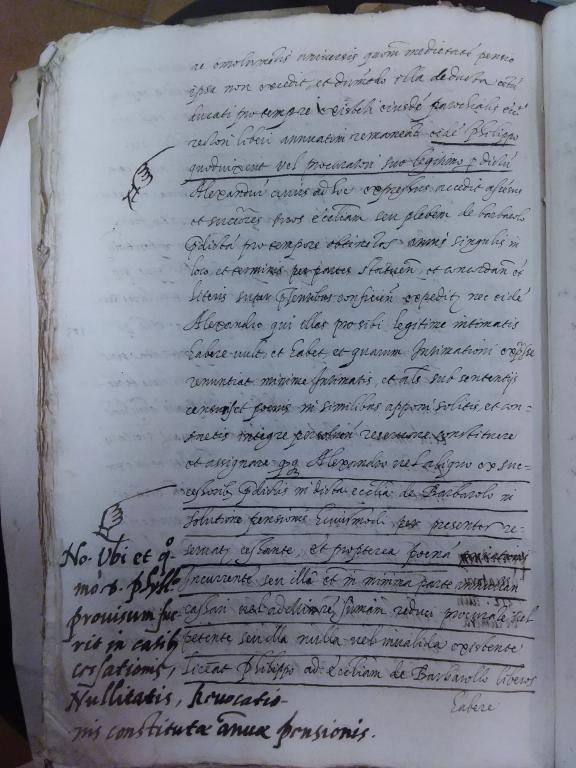 re emolumētis universis quorū medietatē pensio
ipsa non excedit, et
ducati pro tempore ejusdē parochialis
rectori liberi annuatim remaneāt eidē Philippo
quoadvixerit vel procuratori suo legitimo p dictū
Alexandrū cuius ad hoc expressus accedit assensus
et successores suos ecclīam seu plebem de barbarolo
p̄dictā pro tempore obtinētes annis singulis in
loco et terminis per partes statuen et
literis super p̄sentibus conficien expedit nec eidē
Alexandro qui illas pro sibi legitime intimatis
habere vult, et habet et quarum Intimationi exp̄sse
renuntiat minime Intimatis, et als sub sententijs
censuris et poenis in similibus apponi solitis et con-
suetis integre persolven reservare constituere
et assignare Alexandro vel aliquo ex suc-
cessorib p̄dictis in dicta ecclīa de Barbarolo in
solutione pensionis huiusmodi per presentes re-
servatę cessante, et propterea poenā privationis
incurrente seu illa et in minima parte
cassari vel ad summam reduci procurata vel
petente seu illa nulla vel invalida existente
liceat Philippo ad ecclīam de Barbarollo liberos
habere
No. Ubi et q-
mō. D. Phyllo
provisum fue
rit in casib
cessationis,
Nullitatis, Revocatio-
nis constitutæ annuæ pensionis.